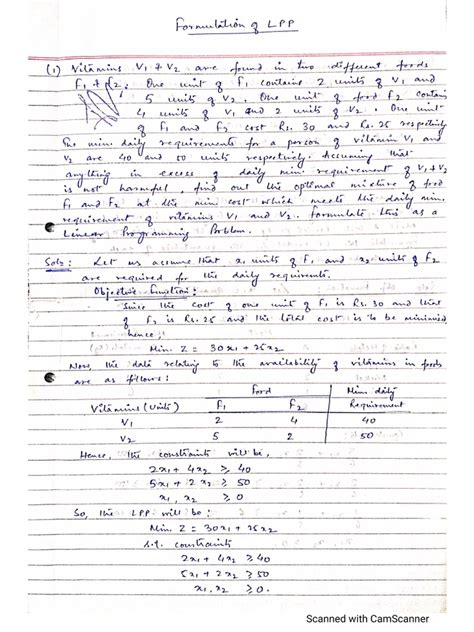 Formulation of LPP
(1) Vitamins V1 & V2 are found in two different foods
F1 & F2. One unit of F1 contains 2 units of V1 and
5 units of V2. One unit of food F2 contains
4 units of V1 and 2 units of V2. One unit
of F1 and F2 cost Rs. 30 and Rs. 25 respectively
The min daily requirements for a person of vitamin V1 and
V2 are 40 and 50 units respectively. Assuming that
anything in excess of daily min. requirement of V1 & V2
is not harmful, find out the optimal mixture of food
F1 and F2 at the min cost which meets the daily min.
requirement of vitamins V1 and V2. Formulate this as a
Linear Programming Problem.
Soln: Let us assume that x1 units of F1 and x2 units of F2
are required for the daily requirements.
Objective function:
Since the cost of one unit of F1 is Rs. 30 and that
of F2 is Rs. 25 and the total cost is to be minimised
hence,
Min. Z = 30x1 + 25x2
Now, the data relating to the availability of vitamins in foods
are as follows:
Food Min. daily
Vitamins (Units) F1 F2 Requirement
V1 2 4 40
V2 5 2 50
Hence, the constraints will be,
2x1 + 4x2 ≥ 40
5x1 + 2x2 ≥ 50
x1, x2 ≥ 0
So, the LPP will be:
Min. Z = 30x1 + 25x2
s.t. constraints
2x1 + 4x2 ≥ 40
5x1 + 2x2 ≥ 50
x1, x2 ≥ 0.
Scanned with CamScanner